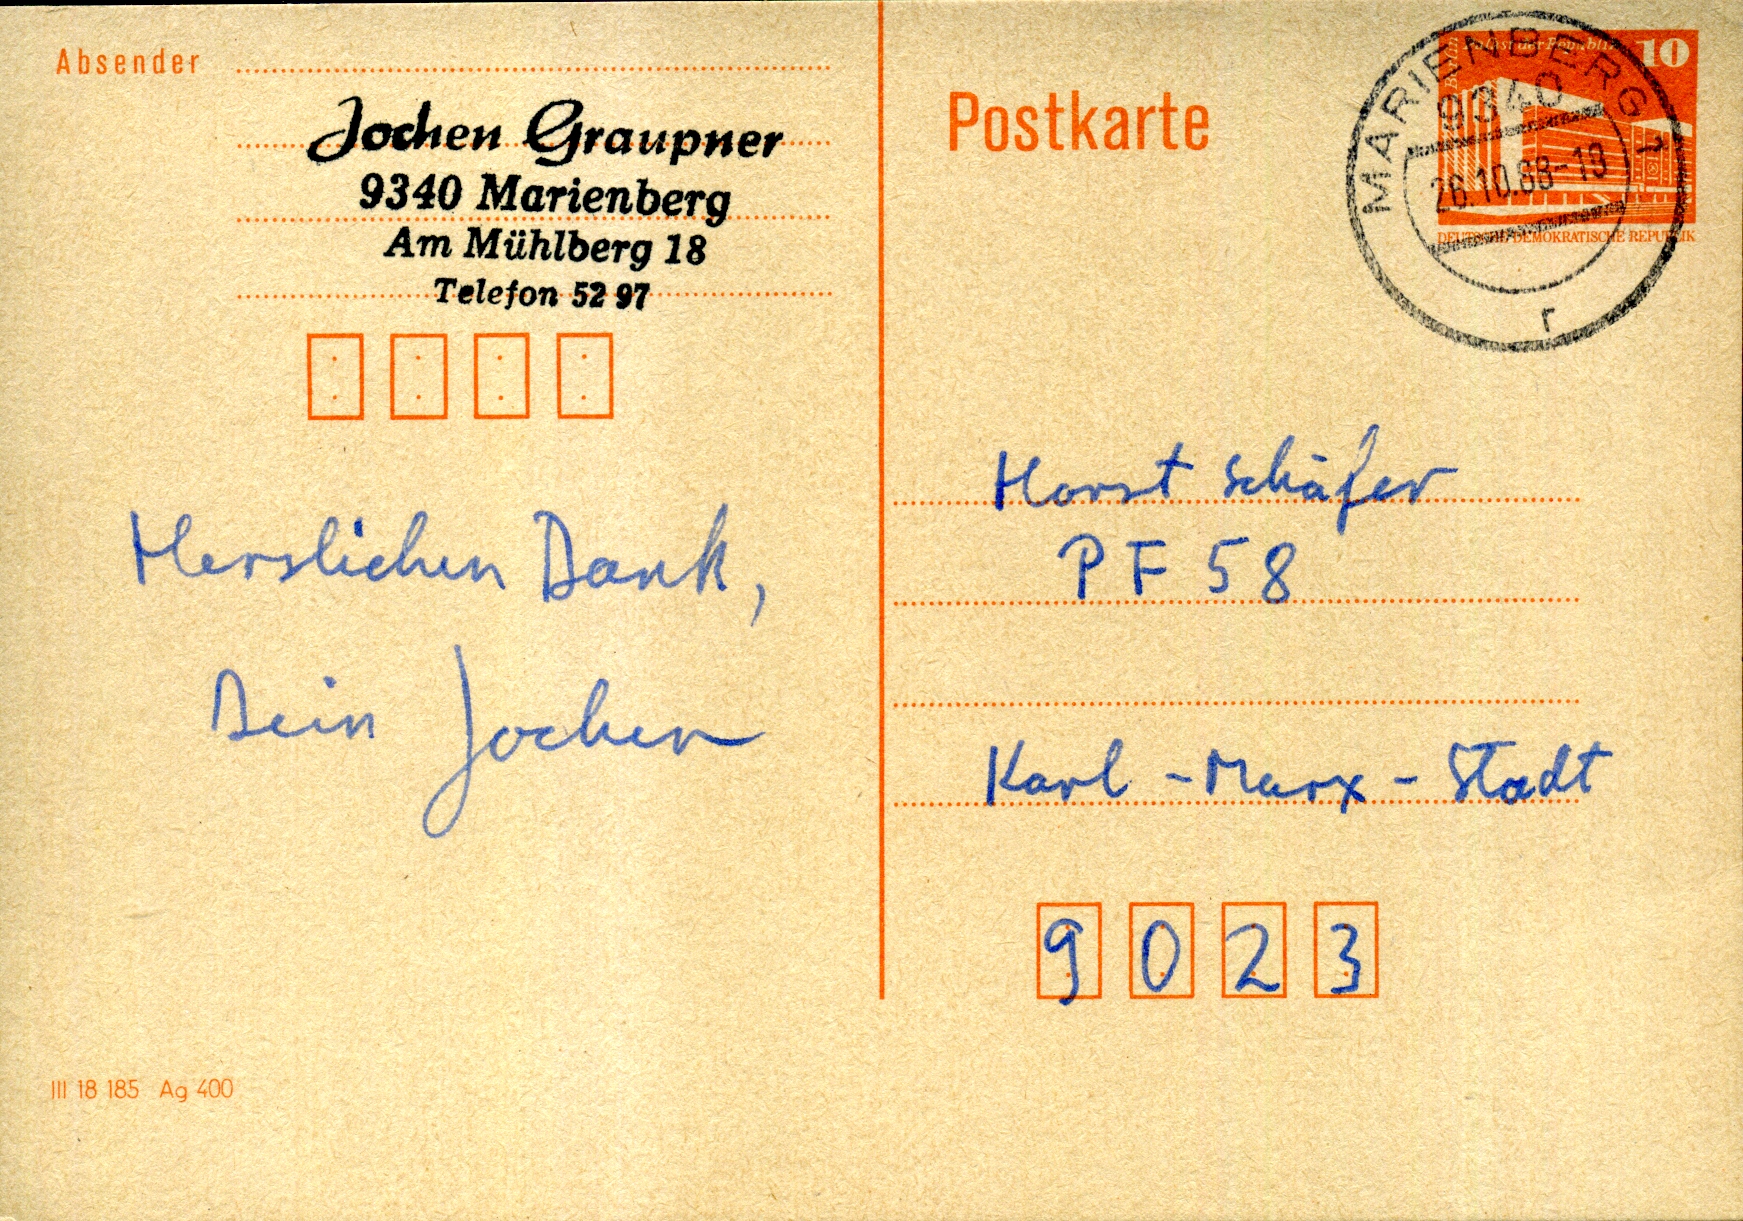 Absender
Jochen Graupner
9340 Marienberg
Am Mühlberg 18
Telefon 52 97
Herzlichen Dank,
Dein Jochen
III 18 185 Ag 400
Postkarte
Berlin Palast der Republik
10
DEUTSCHE DEMOKRATISCHE REPUBLIK
MARIENBERG 1
9340
26.10.88-18
r
Horst Schäfer
PF 58
Karl-Marx-Stadt
9023